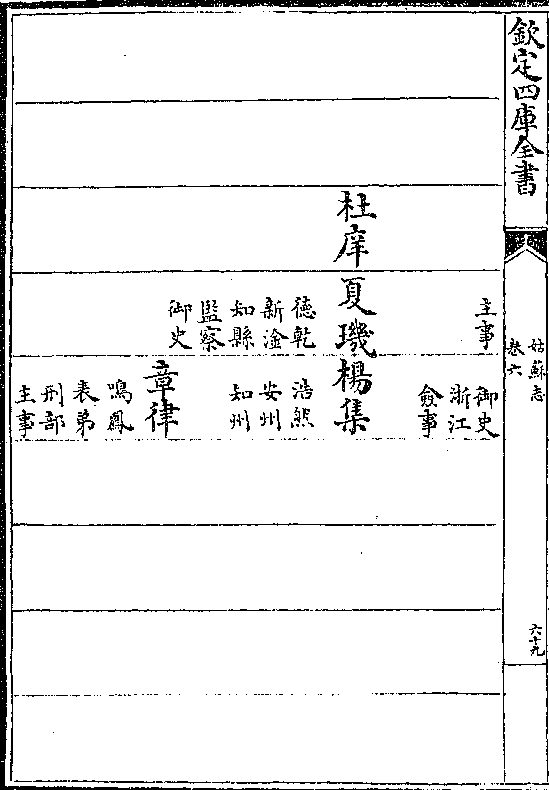 欽定四庫全書
姑蘇志
卷六
六十九
杜庠
主事
夏璣
德乾
新淦
知縣
監察
御史
御史
浙江
僉事
楊集
浩然
安州
知州
章律
鳴鳳
表弟
刑部
主事